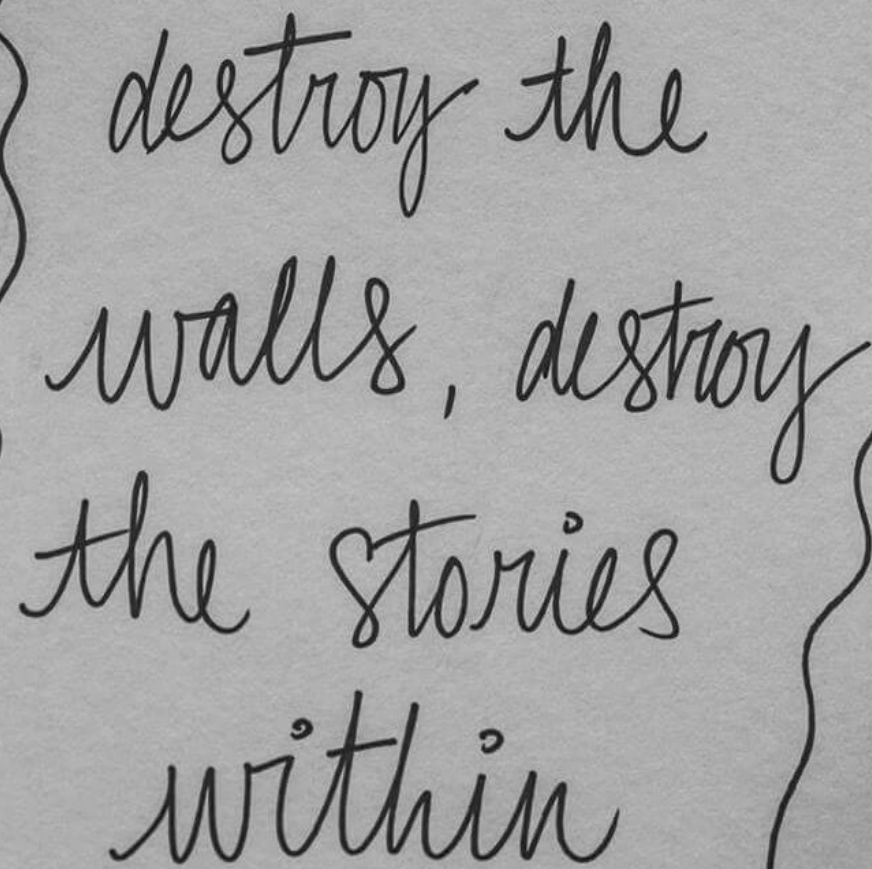 destroy the
walls, destroy
the stories
within